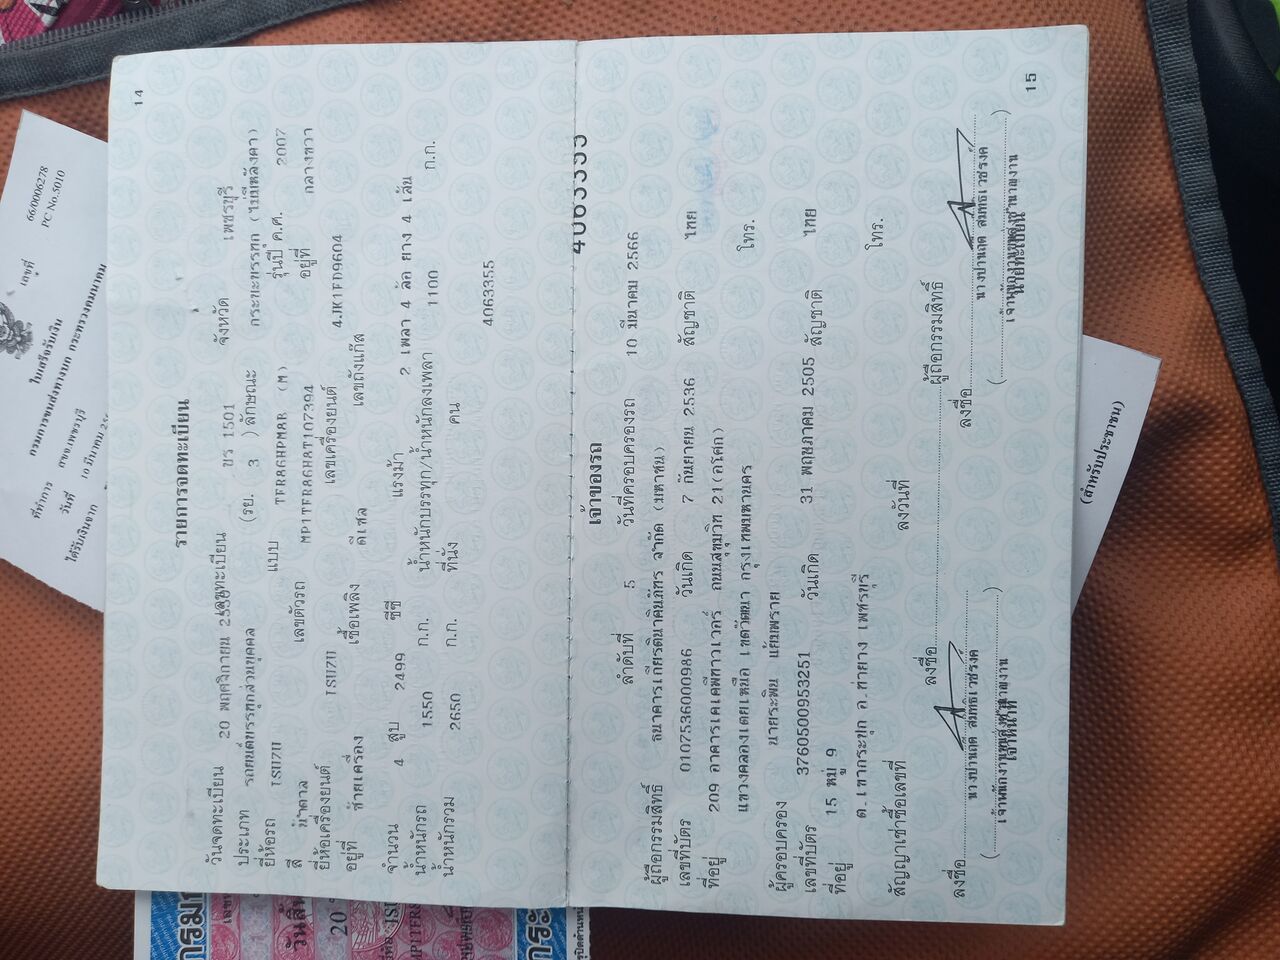 14
รายการจดทะเบียน
วันจดทะเบียน 20 พฤศจิกายน 2550 เลขทะเบียน บร 1501 จังหวัด เพชรบุรี
ประเภท รถยนต์บรรทุกส่วนบุคคล (รย. 3 ) ลักษณะ กระบะบรรทุก (ไม่มีหลังคา)
ยี่ห้อรถ ISUZU แบบ TFR86HPMAR (M) รุ่นปี ค.ศ. 2007
สี น้ำตาล เลขตัวรถ MP1TFR86H8T107394 อยู่ที่ กลางขวา
ยี่ห้อเครื่องยนต์ ISUZU เลขเครื่องยนต์ 4JK1FD9604
อยู่ที่ ซ้ายเครื่อง เชื้อเพลิง ดีเซล เลขถังแก๊ส
จำนวน 4 สูบ 2499 ซีซี แรงม้า 2 เพลา 4 ล้อ ยาง 4 เส้น
น้ำหนักรถ 1550 ก.ก. น้ำหนักบรรทุก/น้ำหนักลงเพลา 1100 ก.ก.
น้ำหนักรวม 2650 ก.ก. ที่นั่ง คน
4063355
4063355
เจ้าของรถ
ลำดับที่ 5 วันที่ครอบครองรถ 10 มีนาคม 2566
ผู้ถือกรรมสิทธิ์ ธนาคารเกียรตินาคินภัทร จำกัด (มหาชน)
เลขที่บัตร 0107536000986 วันเกิด 7 กันยายน 2536 สัญชาติ ไทย
ที่อยู่ 209 อาคารเคเคพีทาวเวอร์ ถนนสุขุมวิท 21(อโศก)
แขวงคลองเตยเหนือ เขตวัฒนา กรุงเทพมหานคร โทร.
ผู้ครอบครอง นายระพิน แย้มพราย
เลขที่บัตร 3760500953251 วันเกิด 31 พฤษภาคม 2505 สัญชาติ ไทย
ที่อยู่ 15 หมู่ 9
ต.เขากระปุก อ.ท่ายาง เพชรบุรี โทร.
สัญญาเช่าซื้อเลขที่ ลงวันที่
ลงชื่อ ผู้ถือกรรมสิทธิ์
ลงชื่อ ลงชื่อ
15
เลขที่ 66/0006278
PC No.5010
ใบเสร็จรับเงิน
กรมการขนส่งทางบก กระทรวงคมนาคม
ที่ทำการ สขจ.เพชรบุรี
วันที่ 10 มีนาคม
ได้รับเงินจาก
(สำหรับประชาชน)